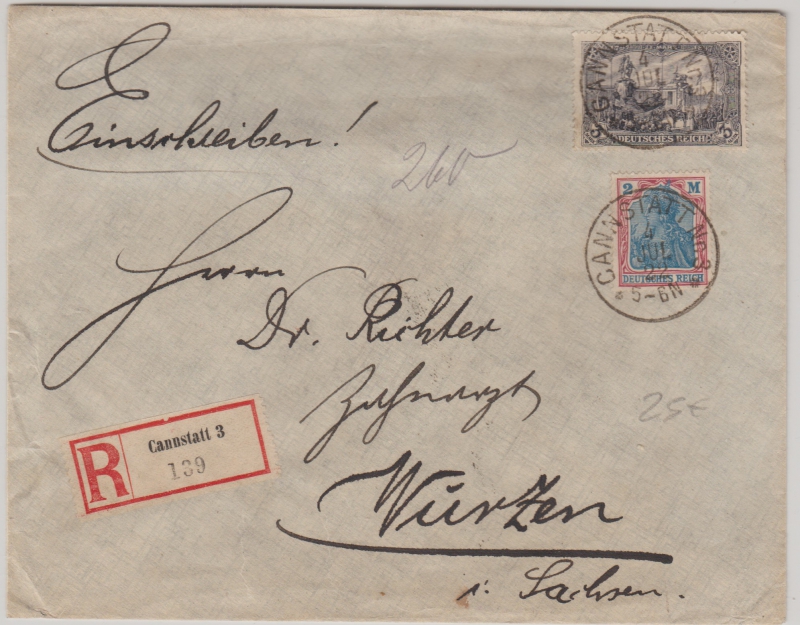 Einschreiben!
CANNSTATT No
4
JUL
5 5
DEUTSCHES REICH
260
2 M
CANNSTATT No 3
4
JUL
22
5-6N
DEUTSCHES REICH
Herrn
Dr. Richter
Zahnarzt
25€
R
Cannstatt 3
139
Wurzen
i. Sachsen.